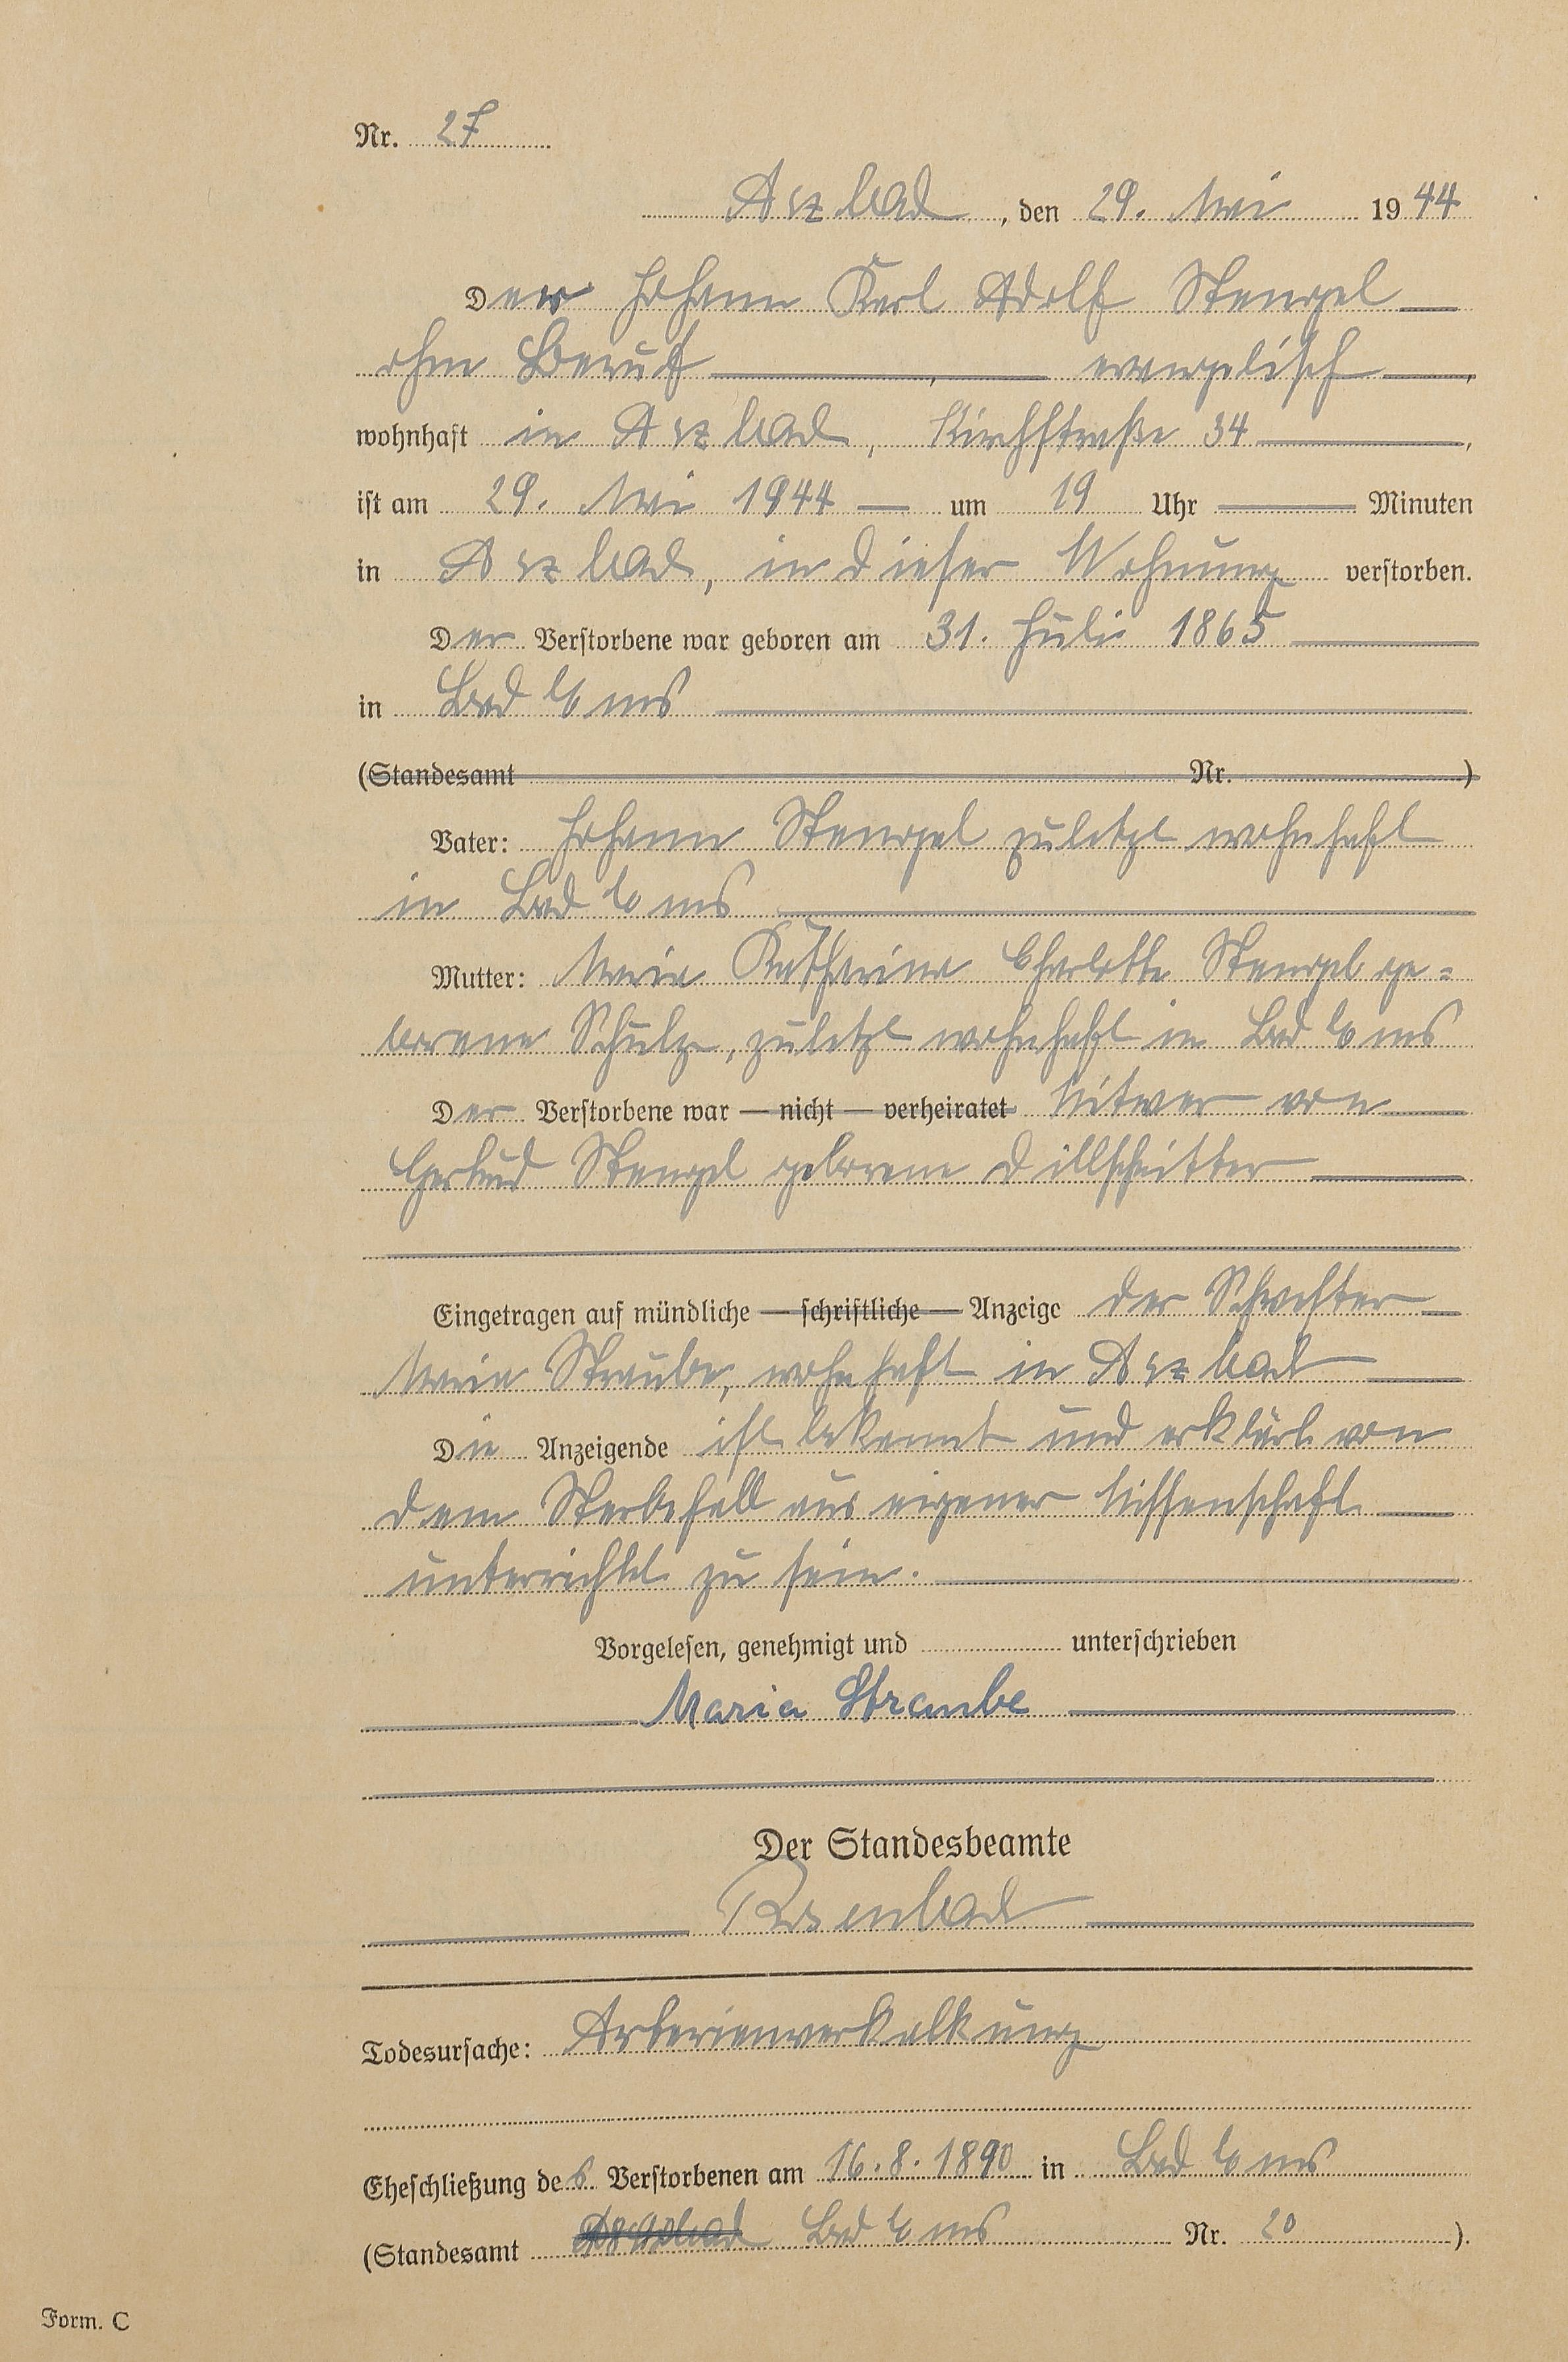 Nr. 27
Arzbach, den 29. Mai 1944
Der Johann Karl Adolf Stengel
ohne Beruf, evangelisch,
wohnhaft in Arzbach, Kirchstraße 34,
ist am 29. Mai 1944 um 19 Uhr Minuten
in Arzbach, in dieser Wohnung verstorben.
Der Verstorbene war geboren am 31. Juli 1865
in Bad Ems
(Standesamt Nr. )
Vater: Johann Stengel zuletzt wohnhaft
in Bad Ems
Mutter: Maria Katharina Charlotte Stengel ge-
borene Schulze, zuletzt wohnhaft in Bad Ems
Der Verstorbene war — nicht — verheiratet Witwer von
Gertrud Stengel geborene Dillschnitter
Eingetragen auf mündliche — schriftliche — Anzeige der Schwester
Maria Straube, wohnhaft in Arzbach
Die Anzeigende ist bekannt und erklärt von
dem Sterbefall aus eigener Wissenschaft
unterrichtet zu sein.
Vorgelesen, genehmigt und unterschrieben
Maria Straube
Der Standesbeamte
Todesursache: Arterienverkalkung
Eheschließung des Verstorbenen am 16.8.1890 in Bad Ems
(Standesamt Arzbach Bad Ems Nr. 20 ).
Form. C